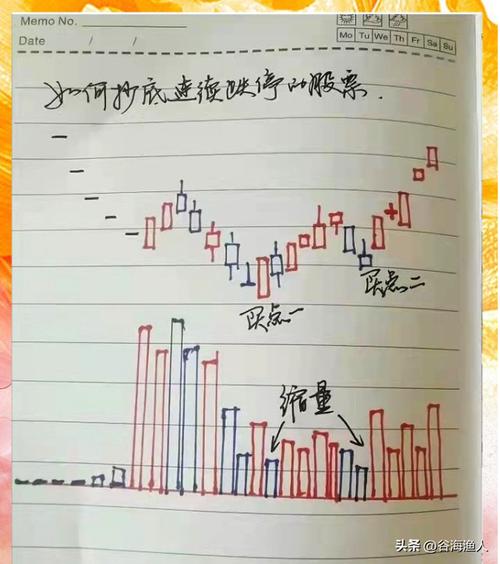 Memo No.
Date / /
Mo Tu We Th Fr Sa Su
如何抄底连续跌停的股票.
买点一
买点二
缩量
头条 @谷海渔人